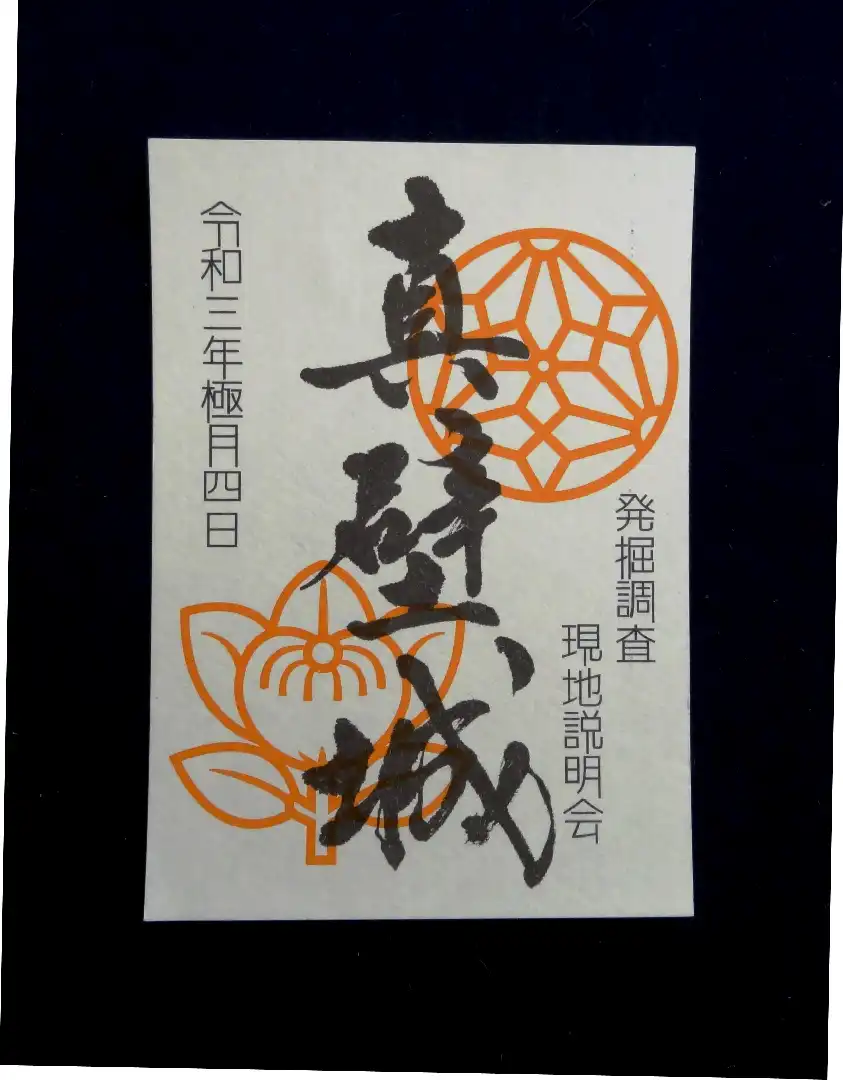 発掘調査
現地説明会
真壁城
令和三年極月四日